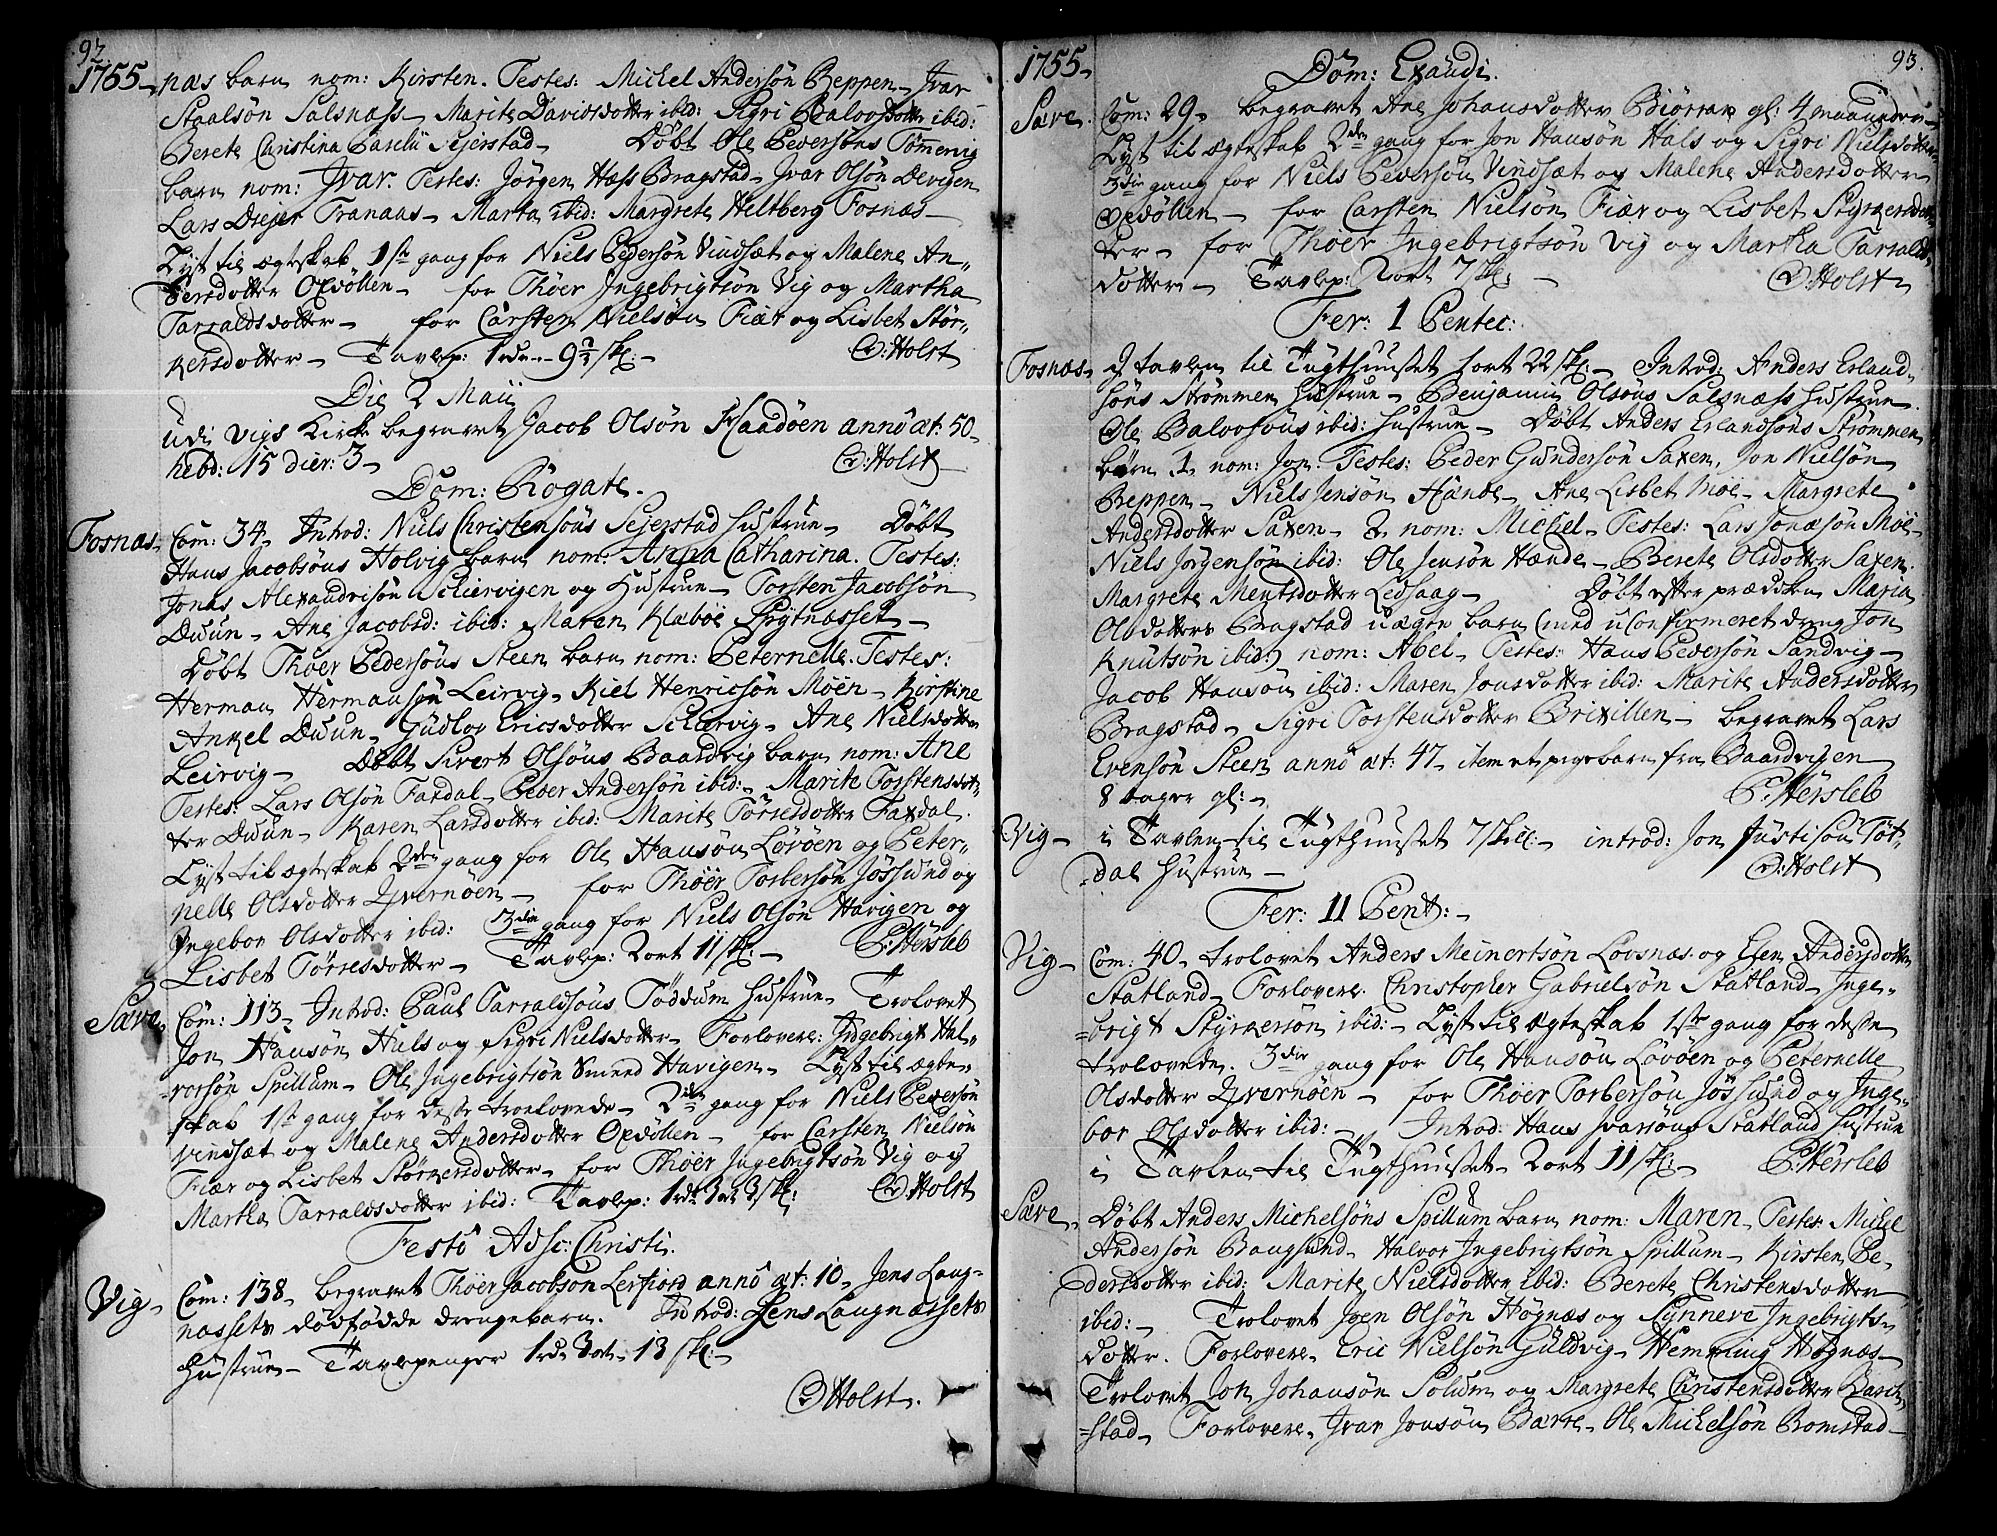 92.
1755 -
næs barn nom: Kirsten. Testes: Michel Andersøn Beppen - Ivar
Staalsøn Salsnæss - Marite Davidsdotter ibid: Sigri Baloosdotter ibid:
Berete Christina Barelii Sejerstad - Døbt Ole Pedersøns Tømmervig
barn nom: Ivar. Testes: Jørgen Hass Bragstad - Ivar Olsøn Devigen
Lars Drejer Tranaas - Marta ibid: Margrete Heltberg Fosnæs -
Lyst til ægteskab 1ste gang for Niels Pedersøn Vindsæt og Malene An-
dersdotter Opvøllen - for Thøer Ingebrigtsøn Vig og Martha
Tarraldsdotter - for Carsten Nielsøn Fiær og Lisbet Stør-
kersdotter - Tavlep: 1 rdr 9½ sk: - D: Holst
Die 2 Maii
udi Vigs Kirke begravet Jacob Olsøn Haadøen anno æt: 50 -
hebd: 15 dier: 3 - D: Holst
Dom: Rogate.
Fosnæs - Com: 34 - Introd: Niels Christensøns Sejerstad Hustrue - Døbt
Hans Jacobsøns Holvig barn nom: Anna Catharina. Testes:
Jonas Alexandersøn Schiervigen og Hustrue - Torsten Jacobsøn
Duun - Ane Jacobsd: ibid: Maren Klæbøe Prytnæsset -
Døbt Thøer Pedersøns Steen barn nom: Peternelle. Testes:
Herman Hermansøn Leirvig - Kiel Henricsøn Moen - Kirstine
Ankel Duun - Gudlov Ericsdotter Schiærvig - Ane Nielsdotter
Leirvig - Døbt Sivert Olsøns Baardvig barn nom: Ane
Testes: Lars Olsøn Faxdal - Peder Andersøn ibid: - Marite Torstensdot-
ter Duun - Karen Larsdotter ibid: Marite Tørresdotter Faxdal.
Lyst til ægteskab 2den gang for Ole Hansøn Løvøen og Peter-
nelle Olsdotter Qvernøen - for Thøer Torbersøn Jøssund og
Ingebor Olsdotter ibid: 3die gang for Niels Olsøn Havigen og
Lisbet Tørresdotter - Tavlep: 2 ort 11 sk: - P: Hersleb
Sævr - Com: 113 - Introd: Paul Tarraldsøns Tøddum Hustrue - Trolovet
Jon Hansøn Huls og Sigri Nielsdotter - Forlovere: Ingebrigt Hal-
vorsøn Spillum - Ole Ingebrigtsøn Smeed Havigen - Lyst til ægte-
skab 1ste gang for desse troelovede - 2den gang for Niels Pedersøn
vindsæt og Malene Andersdotter Opvøllen - for Carsten Nielsøn
Fiær og Lisbet Størkersdotter - for Thøer Ingebrigtsøn Vig og
Martha Tarraldsdotter ibid: Tavlep: 1 rdr 3 ort 3 sk: D: Holst
Festo Adsc: Christi.
Vig - Com: 138 - begravet Thøer Jacobsøn Lerfiord anno æt: 10 - Jens Laug-
næssets dødfødde drengebarn. Introd: Jens Laugnæssets
Hustrue - Tavlepenger 1 rdr 3 ort 13 sk: -
D: Holst.
93.
1755 -
Dom: Exaudi.
Sævr. Com: 29 - begravet Ane Johansdotter Biørran gl: 4 maaneder -
Lyst til ægteskab 2den gang for Jon Hansøn Hals og Sigri Nielsdotter
3die gang for Niels Pedersøn Vindsæt og Malene Andersdotter
Opvøllen - for Carsten Nielsøn Fiær og Lisbet Styrkersdot-
ter - for Thøer Ingebrigtsøn Vig og Martha Tarralds-
dotter - Tavlep: 2 ort 7 sk: - D: Holst
Fer: 1 Pentec:
Fosnæs - I tavlen til Tugthuuset 1 ort 22 sk: - Introd: Anders Erland-
søns Strømmen Hustrue - Benjamin Olsøns Salsnæss Hustrue
Ole Baloosøns ibid: Hustrue - Døbt Anders Erlandsøns Strømmen
børn 1. nom: Jon. Testes: Peder Gundersøn Saxen, Jon Nielsøn
Beppen - Niels Jensøn Hænde - Ane Lisbet Moe - Margrete
Andersdotter Saxen - 2. nom: Michel - Testes: Lars Jonæsøn Moe -
Niels Jørgensøn ibid: Ole Jensøn Hænde - Berete Olsdotter Saxen.
Margrete Mentsdotter Ledsaag - Døbt efter prædiken Maria
Olsdotters Bragstad uægte barn (med uconfirmeret dreng Jon
Knutsøn ibid:) nom: Abel - Testes: Hans Pedersøn Sandvig -
Jacob Hansøn ibid: Maren Jonsdotter ibid: Marite Andersdotter
Bragstad - Sigri Torstensdotter Brixillen - begravet Lars
Evensøn Steen anno æt: 47 - item et pigebarn fra Baardvigen
8 dager gl: - P: Hersleb
Vig - i Tavlen til Tugthuuset 7 skill: - introd: Jon Justisøn Tøt-
dal Hustrue - D: Holst
Fer: II Pent: -
Vig - Com: 40 - trolovet Anders Meinertsøn Lovsnæs og Elen Andersdotter
Statland - Forlovere: Christopher Gabrielsøn Statland - Inge-
brigt Styrkersøn ibid: - Lyst til ægteskab 1ste gang for desse
trolovede. 3die gang for Ole Hansøn Løvøen og Peternelle
Olsdotter Qvernøen - for Thøer Torbersøn Jøssund og Inge-
bor Olsdotter ibid: - Introd: Hans Ivarsøns Statland Hustrue
i Tavlen til Tugthuuset - 2 ort 11 sk: - P: Hersleb
Sævr - Døbt Anders Michelsøns Spillum barn nom: Maren - Testes: Michel
Andersøn Bangsund - Halvor Ingebrigtsøn Spillum - Kirsten Pe-
dersdotter ibid: Marite Nielsdotter ibid: Berete Christensdotter
ibid: - Trolovet Joen Olsøn Høgnæs og Synneve Ingebrigts-
dotter. Forlovere - Eric Nielsøn Guldvig - Hemming Høgnæs -
Trolovet Jon Johansøn Solum og Margrete Christensdotter Barch-
stad - Forlovere, Ivar Jonsøn Barre - Ole Michelsøn Romstad -